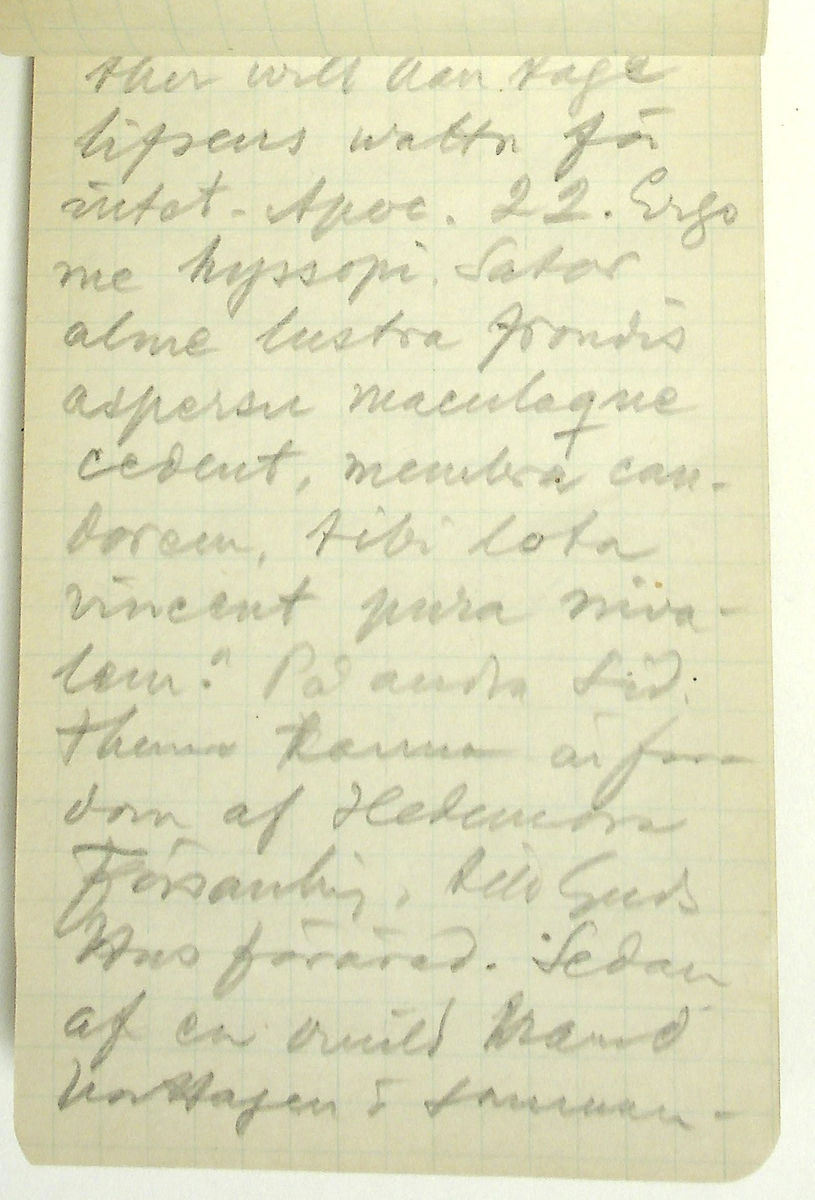 ther will han tage
lifsens wattn för
intet. Apoc. 22. Ergo
me hyssopi. Sator
alme lustra frondis
aspersu maculaque
cedent, membra can-
dorem, tibi lota
vincent pura niva-
lem." På andra sid.
Thenna Kanna är for
dom af Hedemora
Församling, till Guds
Hus förärad. Sedan
af en
borttagen i Somman-